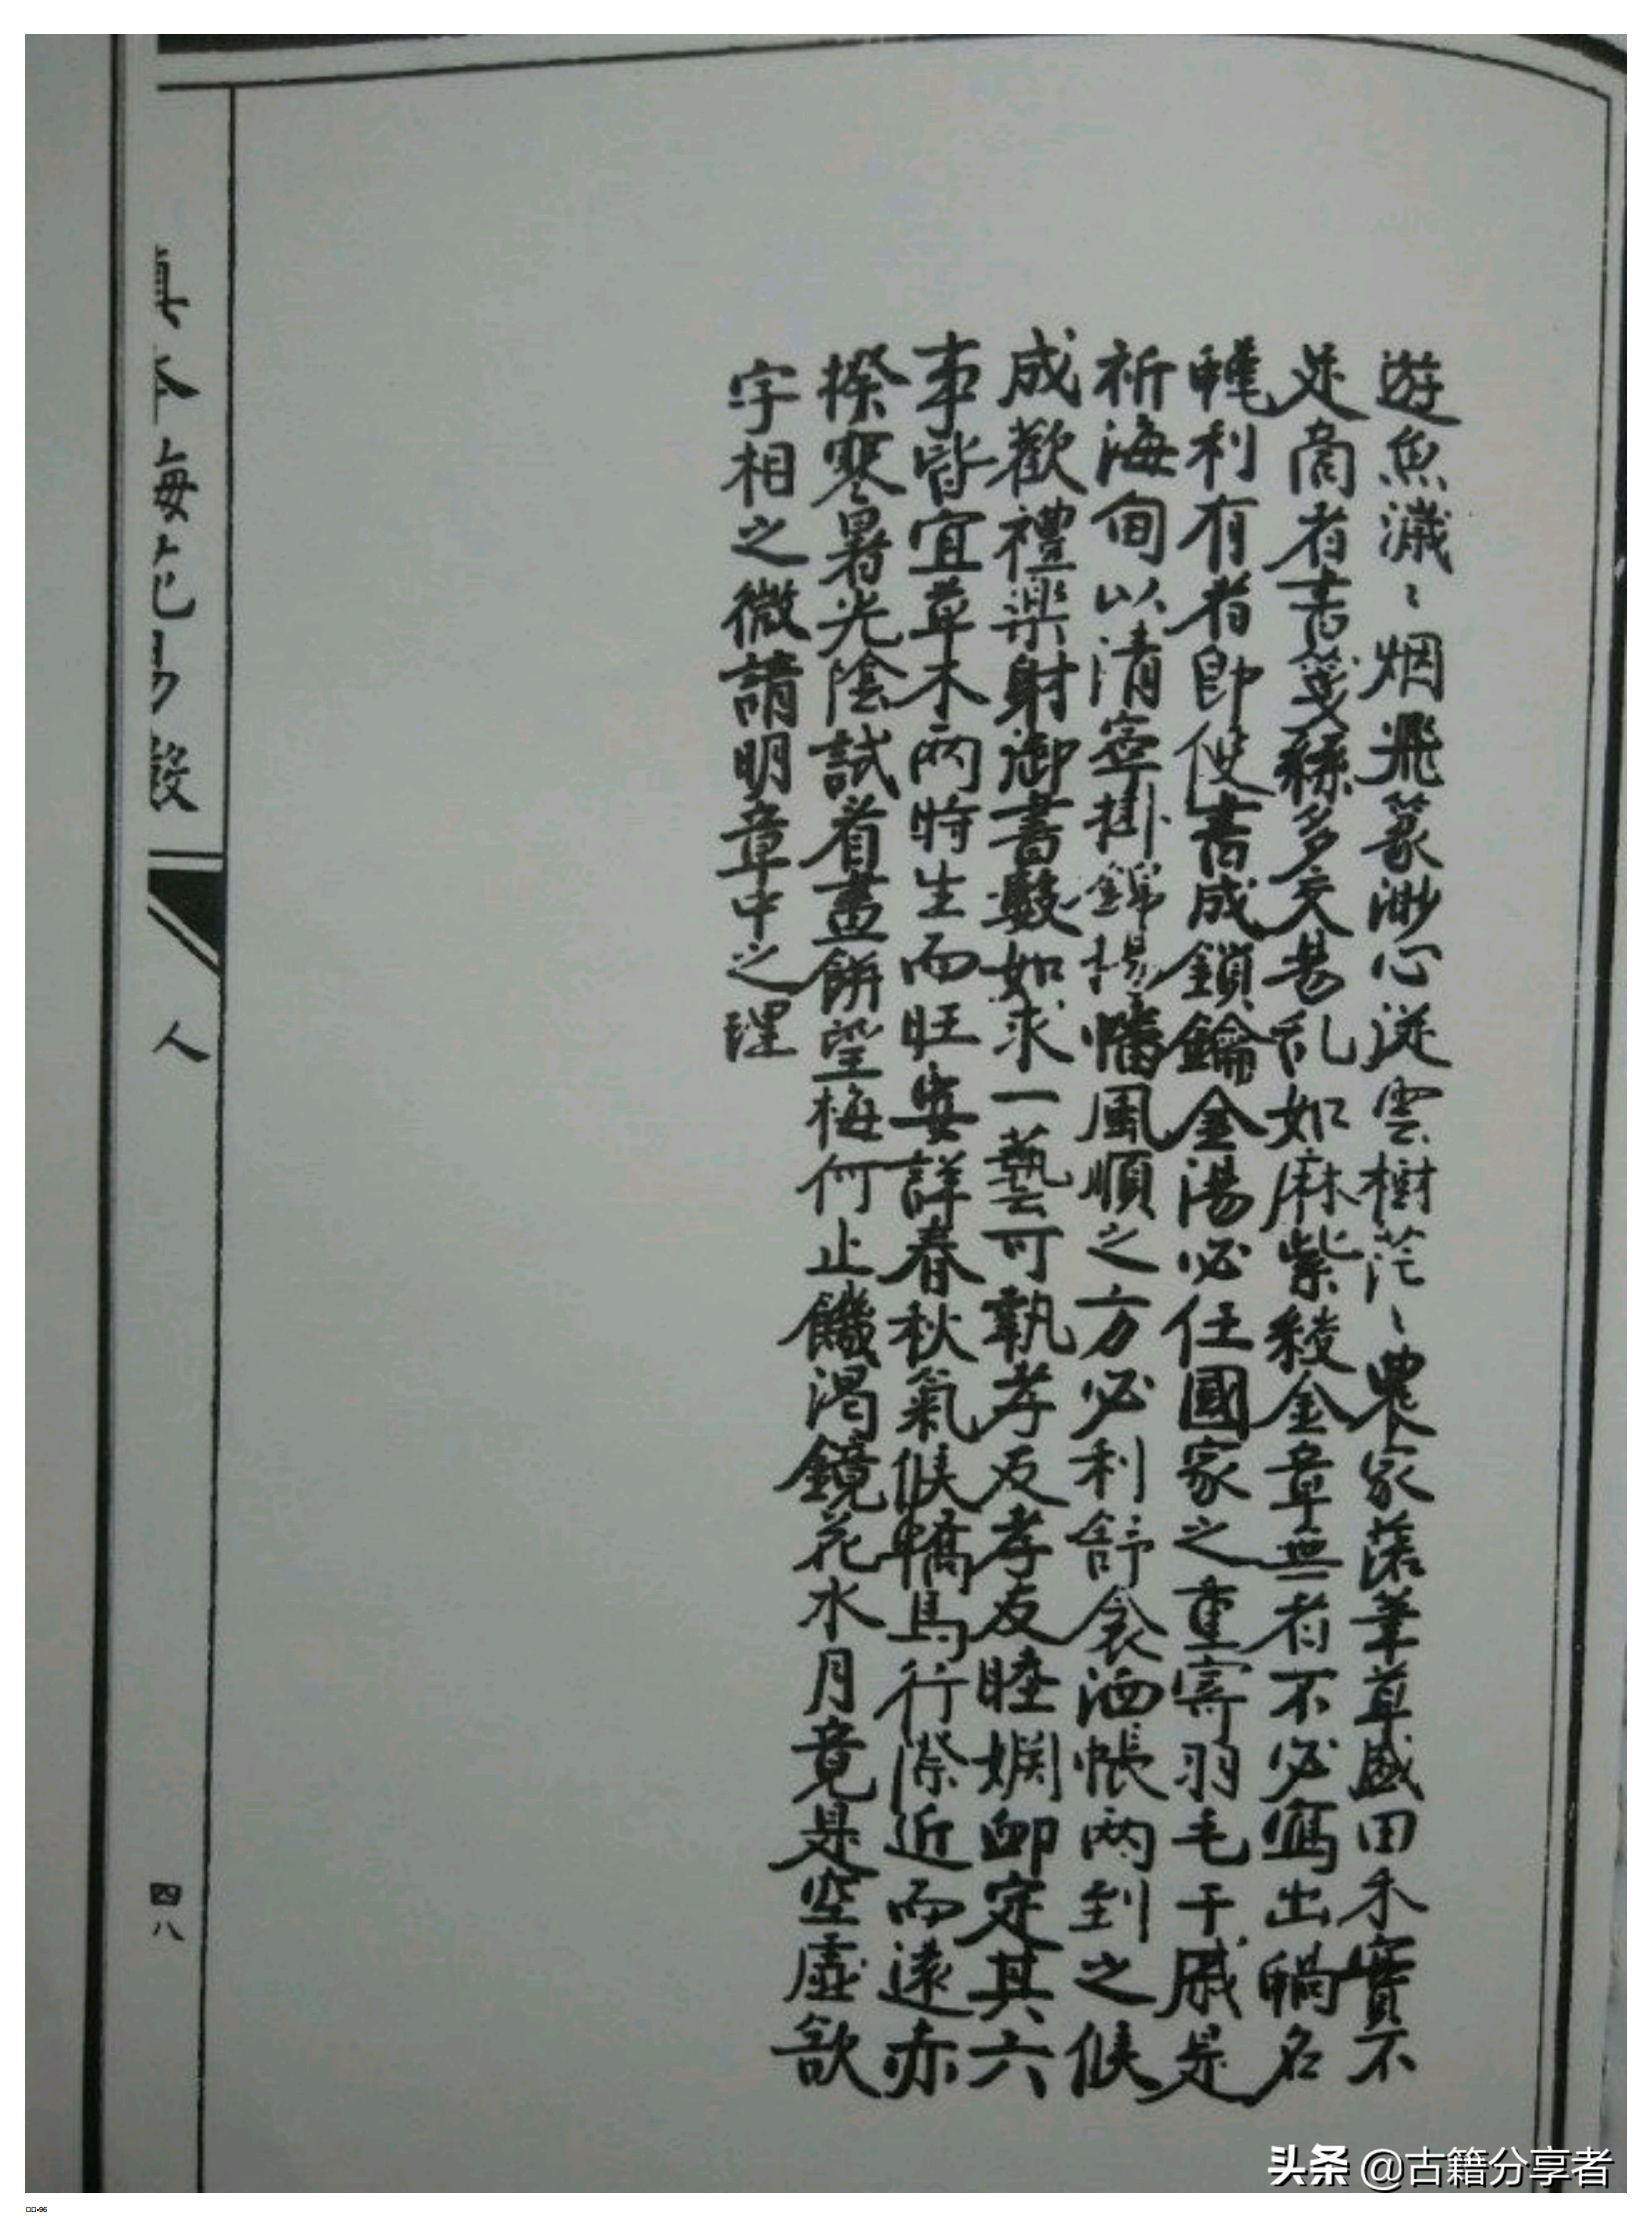 遊魚濈〻烟飛篆渺心逆雲樹茫〻農家落筆草盛田禾實不
足商者書箋繇多交易乱如麻紫綾金章無者不必寫出蝸名
利有者即使書成鎖鑰金湯必任國家之重寄羽毛干戚是
祈海甸以清寧掛錦揚幡風順之方必利舒衾洒帳兩到之候
成歡禮樂射御書數如求一藝可執孝友孝友睦婣卹定其六
事皆宜草木兩時生而旺安詳春秋氣候轎馬行際近而遠亦
揆寒暑光陰試看畫餅望梅何止饑渴鏡花水月竟是空虛欲
字相之微請明章中之理
真本梅花易數
人
四八
头条 @古籍分享者